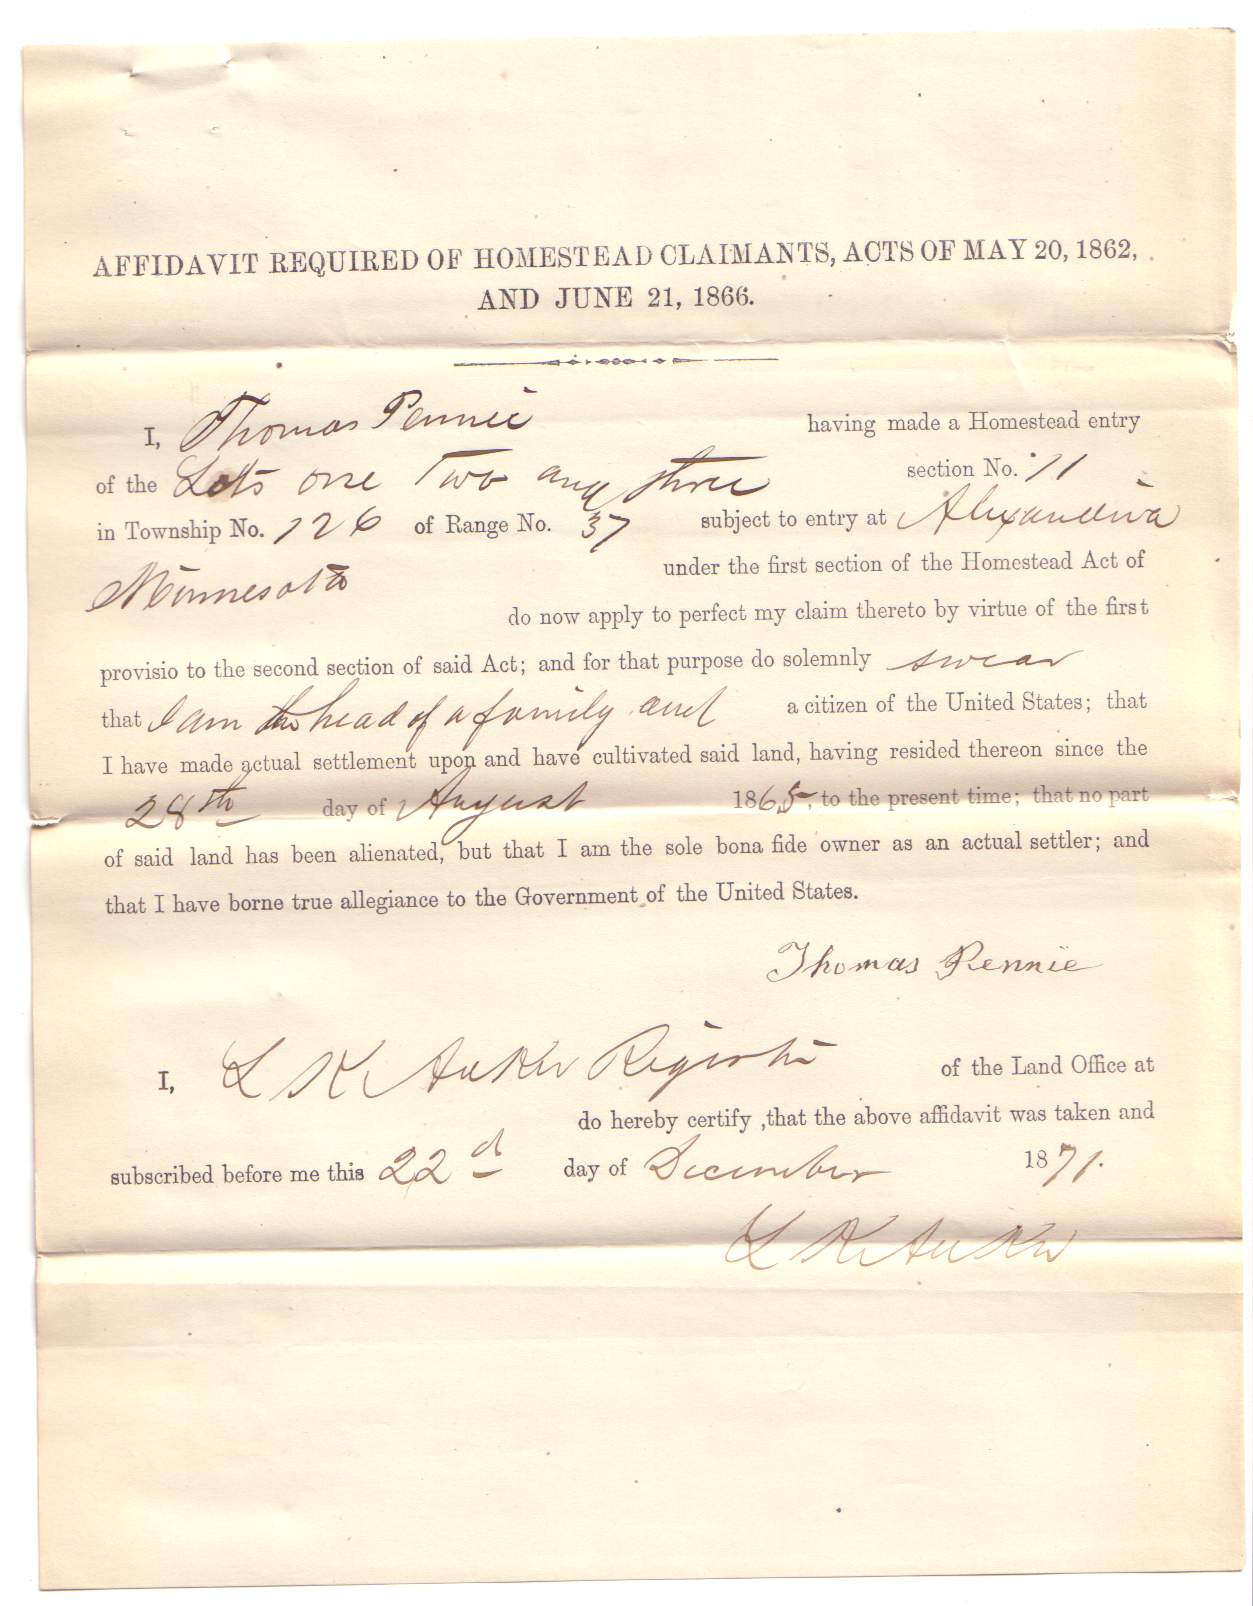 AFFIDAVIT REQUIRED OF HOMESTEAD CLAIMANTS, ACTS OF MAY 20, 1862,
AND JUNE 21, 1866.
I, Thomas Pennie having made a Homestead entry
of the Lots one Two and three section No. 11
in Township No. 126 of Range No. 37 subject to entry at Alexandria
Minnesota under the first section of the Homestead Act of
do now apply to perfect my claim thereto by virtue of the first
provisio to the second section of said Act; and for that purpose do solemnly swear
that I am the head of a family and a citizen of the United States; that
I have made actual settlement upon and have cultivated said land, having resided thereon since the
28th day of August 1865, to the present time; that no part
of said land has been alienated, but that I am the sole bona fide owner as an actual settler; and
that I have borne true allegiance to the Government of the United States.
Thomas Rennie
I, L K Aaker Register of the Land Office at
do hereby certify ,that the above affidavit was taken and
subscribed before me this 22d day of December 1871.
L K Aaker